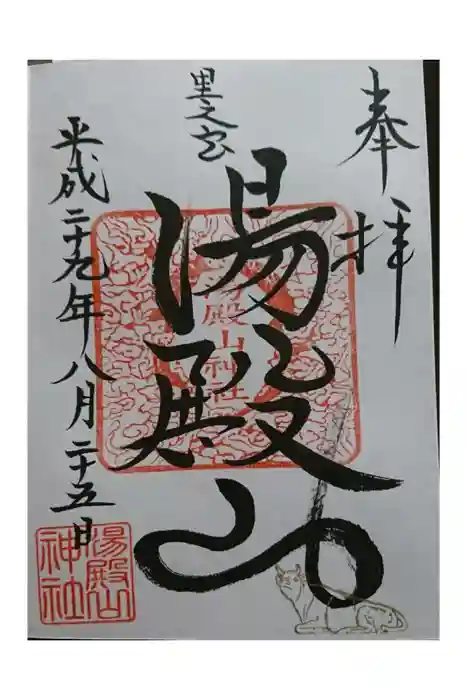 奉拝
里之宮
湯殿山
湯殿山神社
平成二十九年八月二十五日
湯殿山神社